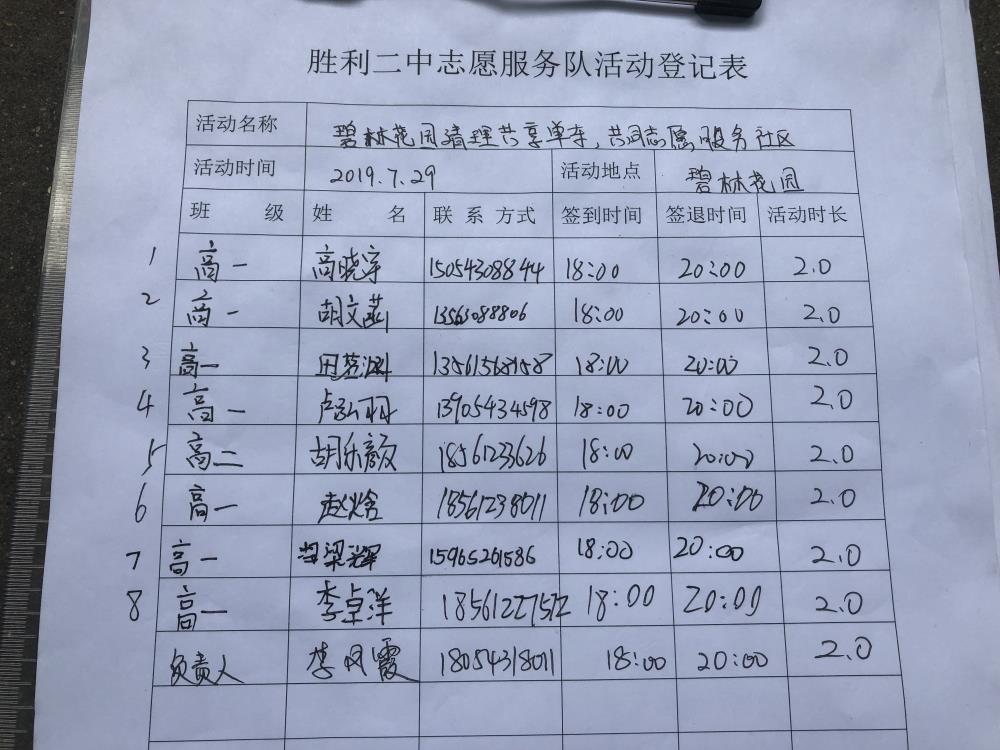 胜利二中志愿服务队活动登记表
活动名称 碧林花园清理共享单车,共同志愿服务社区
活动时间 2019.7.29 活动地点 碧林花园
班 级 姓 名 联 系 方式 签到时间 签退时间 活动时长
1 高一 高晓宇 15054308844 18:00 20:00 2.0
2 高一 胡文菡 13563088806 18:00 20:00 2.0
3 高一 18:00 20:00 2.0
4 高一 卢弘羽 13905434598 18:00 20:00 2.0
5 高二 胡乐颜 18561233626 18:00 20:00 2.0
6 高一 赵焓 18561238011 18:00 20:00 2.0
7 高一 梁辉 15965261586 18:00 20:00 2.0
8 高一 李卓洋 18561227572 18:00 20:00 2.0
负责人 李凤霞 18054318011 18:00 20:00 2.0